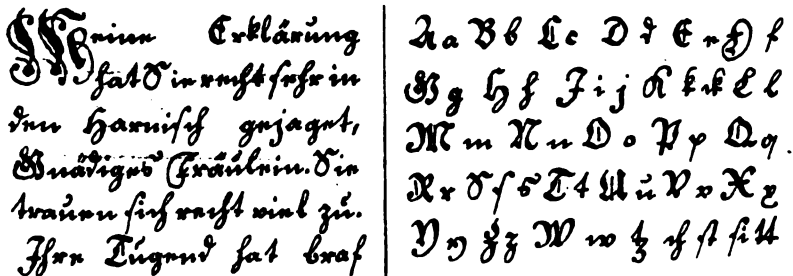 Meine Erklärung
hat Sie recht sehr in
den Harnisch gejaget,
Gnädiges Fräulein. Sie
trauen sich recht viel zu.
Ihre Tugend hat braf
Aa Bb Cc Dd Ee F f
G g H h J i j K k ck L l
M m N n O o P p Q q.
R r S ſ s T t U u V v X x
Y y Z z W w tz ch ſt ſi tt